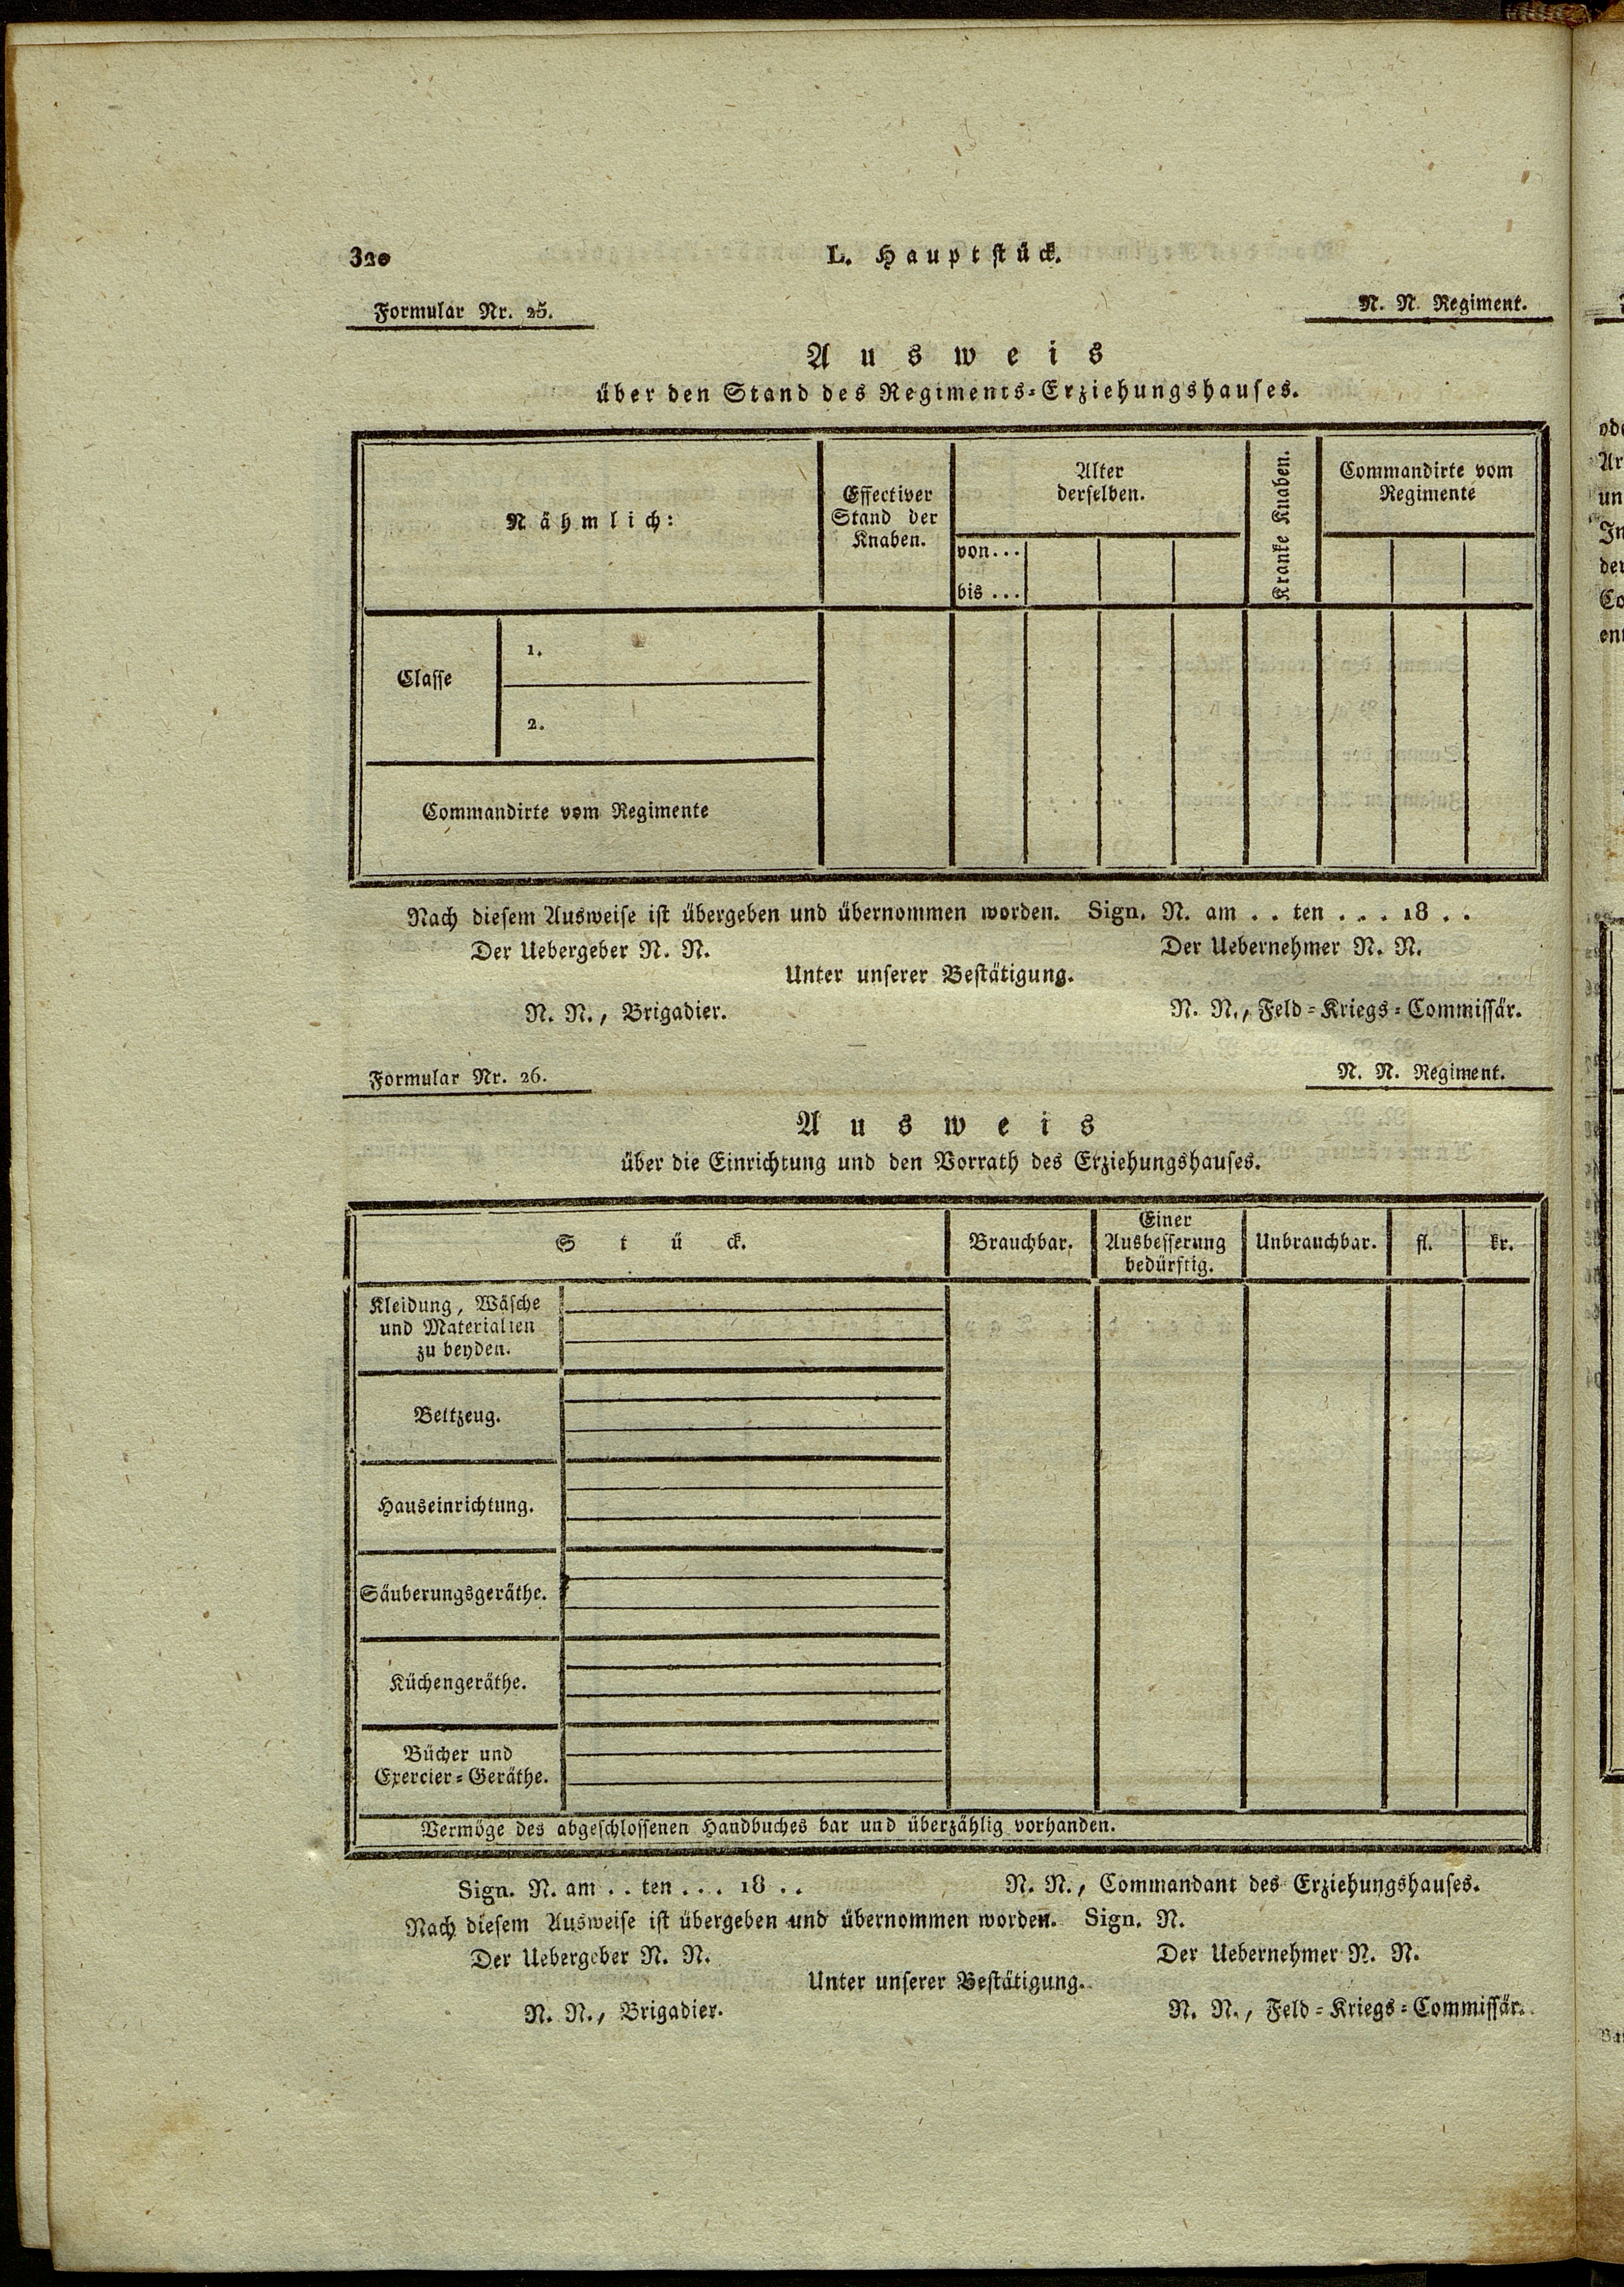 320
L. Hauptstück.
Formular Nr. 25.
N. N. Regiment.
Ausweis
über den Stand des Regiments-Erziehungshauses.
Nähmlich:
Effectiver
Stand der
Knaben.
Alter
derselben.
von...
bis ...
Kranke Knaben.
Commandirte vom
Regimente
Classe
1.
2.
Commandirte vom Regimente
Nach diesem Ausweise ist übergeben und übernommen worden. Sign. N. am . . ten . . . 18 . .
Der Uebergeber N. N.
Der Uebernehmer N. N.
Unter unserer Bestätigung.
N. N., Brigadier.
N. N., Feld-Kriegs-Commissär.
Formular Nr. 26.
N. N. Regiment.
Ausweis
über die Einrichtung und den Vorrath des Erziehungshauses.
Stück.
Brauchbar.
Einer
Ausbesserung
bedürftig.
Unbrauchbar.
fl.
kr.
Kleidung, Wäsche
und Materialien
zu beyden.
Bettzeug.
Hauseinrichtung.
Säuberungsgeräthe.
Küchengeräthe.
Bücher und
Exercier-Geräthe.
Vermöge des abgeschlossenen Handbuches bar und überzählig vorhanden.
Sign. N. am . . ten . . . 18 . .
N. N., Commandant des Erziehungshauses.
Nach diesem Ausweise ist übergeben und übernommen worden. Sign. N.
Der Uebergeber N. N.
Der Uebernehmer N. N.
Unter unserer Bestätigung.
N. N., Brigadier.
N. N., Feld-Kriegs-Commissär.